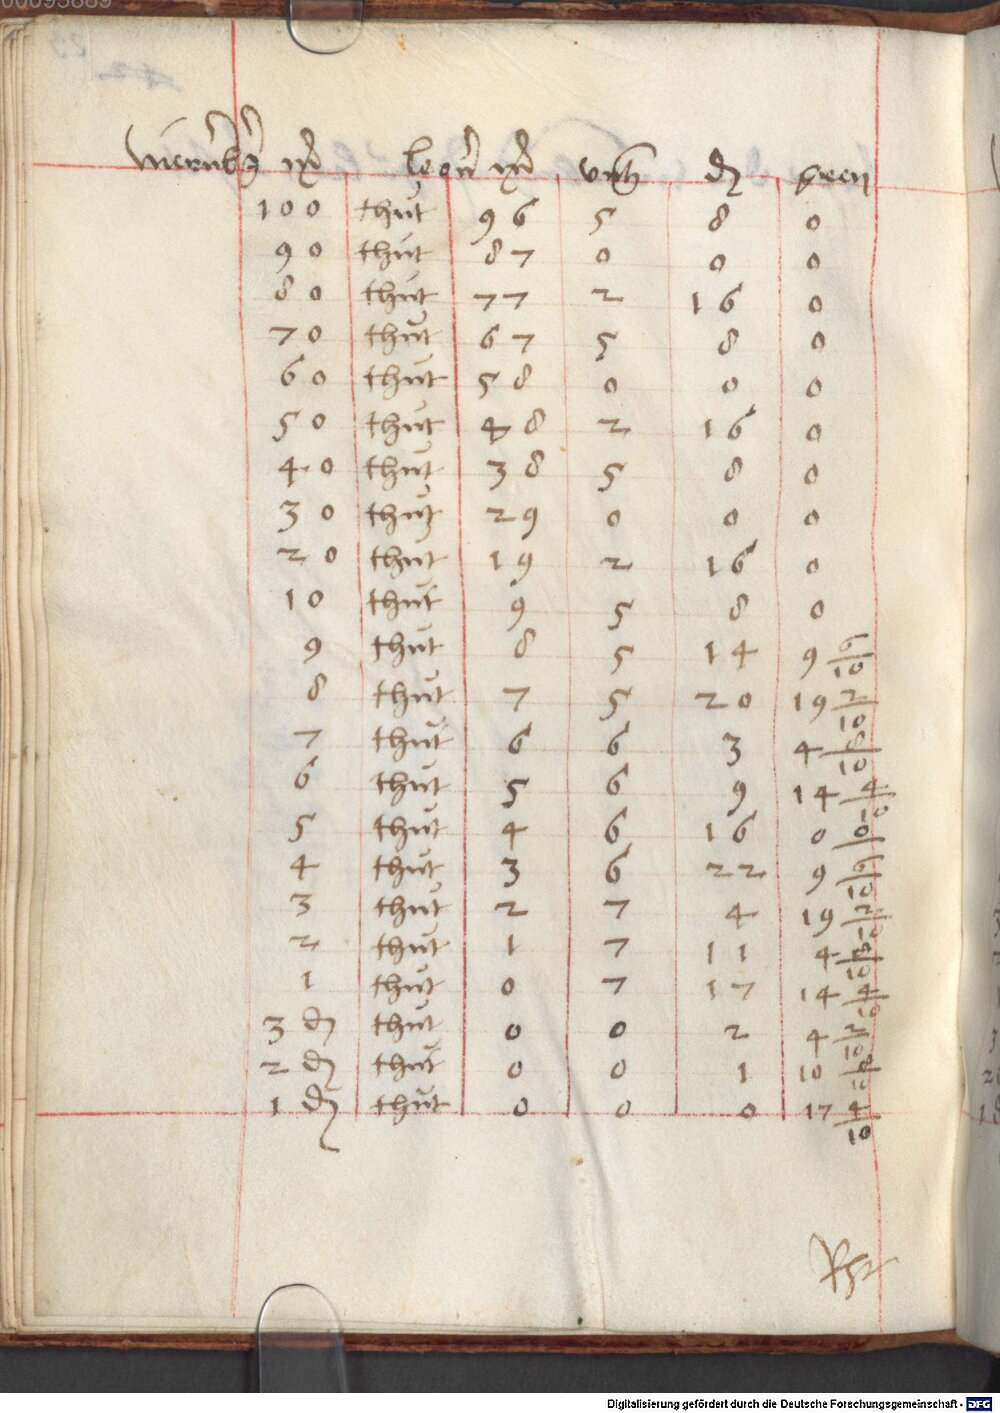 100 thut 96 5 8 0
90 thut 87 0 0 0
80 thut 77 2 16 0
70 thut 67 5 8 0
60 thut 58 0 0 0
50 thut 48 2 16 0
40 thut 38 5 8 0
30 thut 29 0 0 0
20 thut 19 2 16 0
10 thut 9 5 8 0
9 thut 8 5 14 9 6/10
8 thut 7 5 20 19 2/10
7 thut 6 6 3 4 8/10
6 thut 5 6 9 14 4/10
5 thut 4 6 16 0 0
4 thut 3 6 22 9 6/10
3 thut 2 7 4 19 2/10
2 thut 1 7 11 4 8/10
1 thut 0 7 17 14 4/10
3 d thut 0 0 2 4 2/10
2 d thut 0 0 1 10
1 d thut 0 0 0 17 4/10
Digitalisierung gefördert durch die Deutsche Forschungsgemeinschaft - DFG